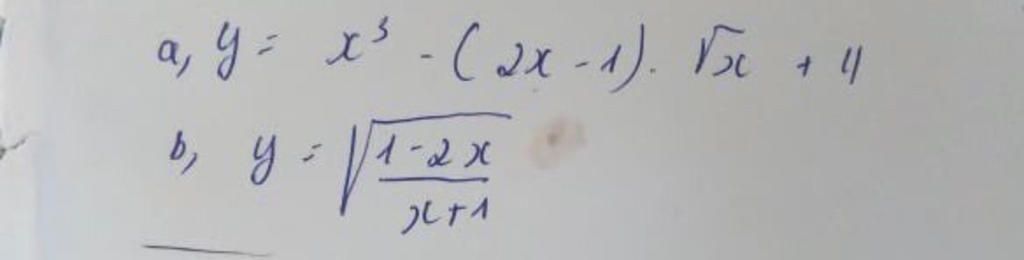 a, y = x³ - (2x - 1). √x + 4
b, y = √((1-2x)/(x+1))